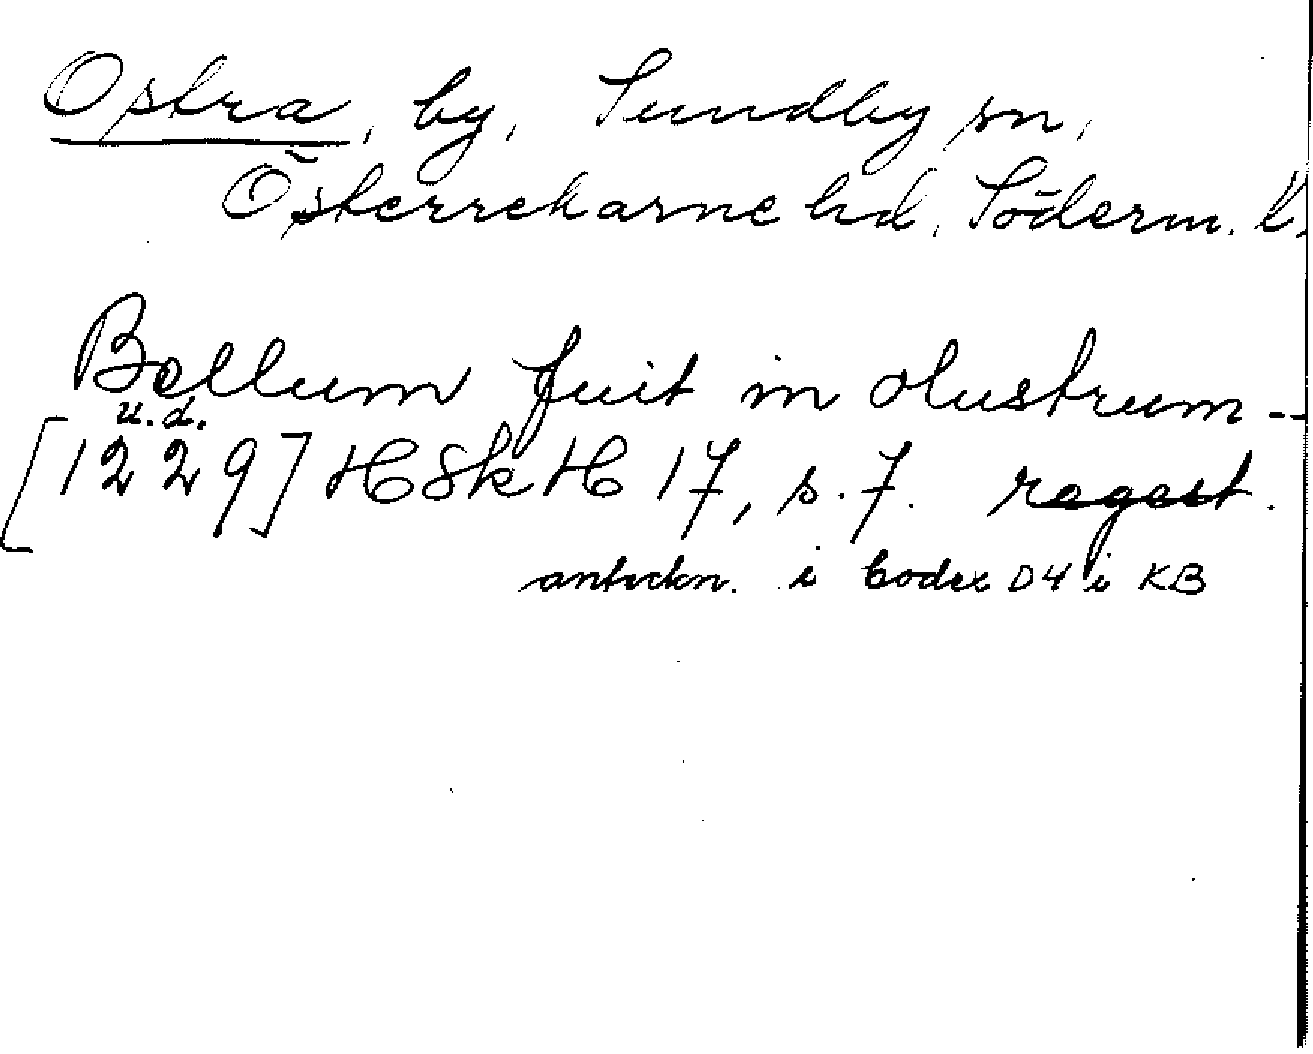 Ostra, by, Sundby sn,
Österrekarne hd, Söderm. l.
Bellum fuit in olustrum --
u.d.
[1229] HSkH 17, s. 7. regest.
anteckn. i Codex D4 i KB